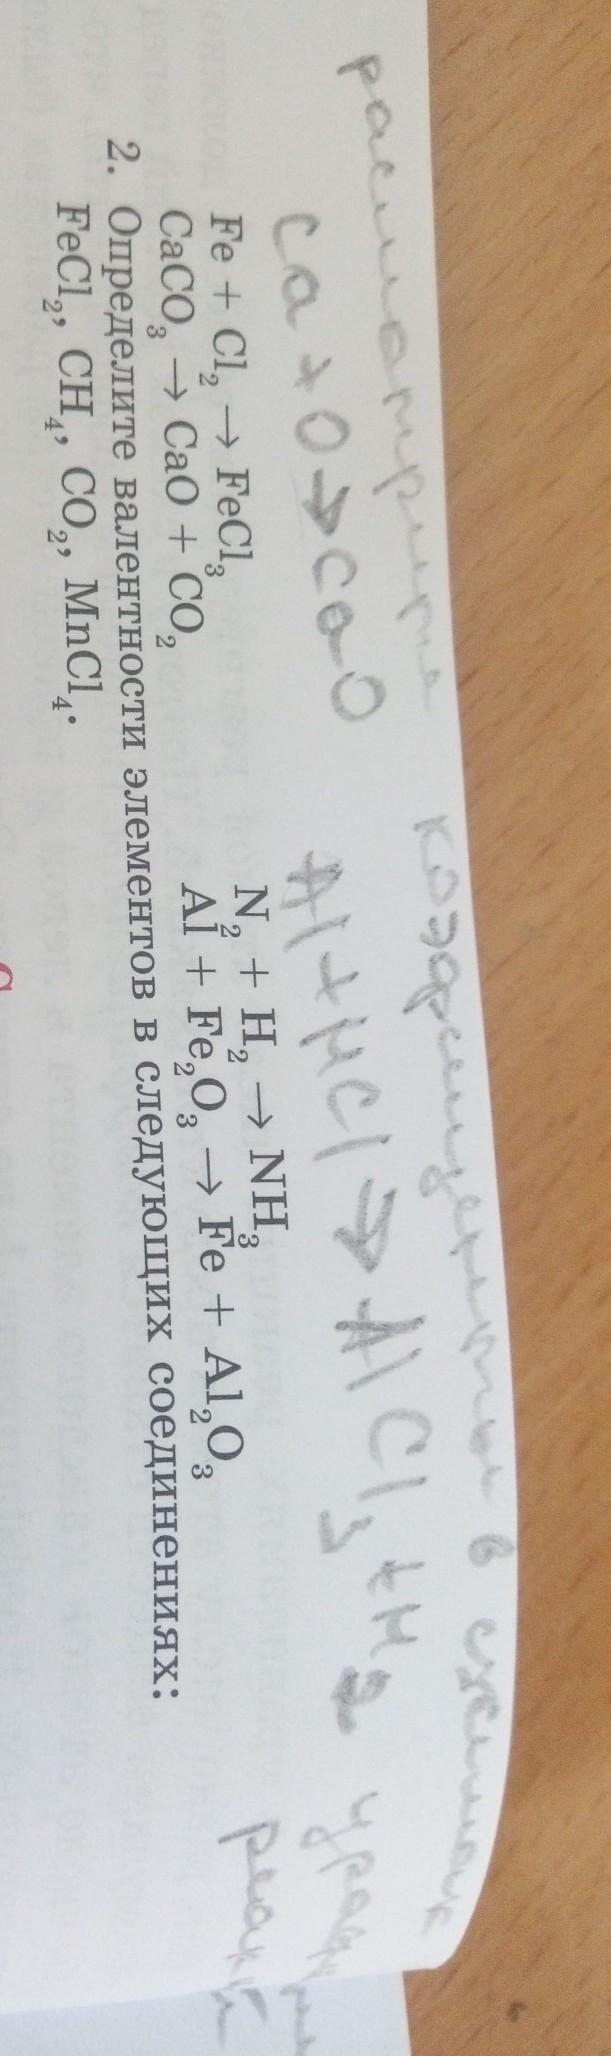 коэффициенты в схемах
Ca + O → CaO Al + HCl → AlCl₃ + H₂
Fe + Cl₂ → FeCl₃ N₂ + H₂ → NH₃
CaCO₃ → CaO + CO₂ Al + Fe₂O₃ → Fe + Al₂O₃
2. Определите валентности элементов в следующих соединениях:
FeCl₂, CH₄, CO₂, MnCl₄.